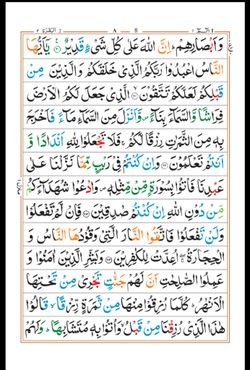 وَاَبْصَارِهِمْ ؕ اِنَّ اللّٰهَ عَلٰى كُلِّ شَىْءٍ قَدِيْرٌ ۞ يٰۤاَيُّهَا
النَّاسُ اعْبُدُوْا رَبَّكُمُ الَّذِىْ خَلَقَكُمْ وَالَّذِيْنَ مِنْ
قَبْلِكُمْ لَعَلَّكُمْ تَتَّقُوْنَ ۞ الَّذِىْ جَعَلَ لَكُمُ الْاَرْضَ
فِرَاشًا وَّالسَّمَآءَ بِنَآءً ۪ وَّاَنْزَلَ مِنَ السَّمَآءِ مَآءً فَاَخْرَجَ
بِهٖ مِنَ الثَّمَرٰتِ رِزْقًا لَّكُمْ ۚ فَلَا تَجْعَلُوْا لِلّٰهِ اَنْدَادًا وَّ
اَنْتُمْ تَعْلَمُوْنَ ۞ وَاِنْ كُنْتُمْ فِىْ رَيْبٍ مِّمَّا نَزَّلْنَا عَلٰى
عَبْدِنَا فَاْتُوْا بِسُوْرَةٍ مِّنْ مِّثْلِهٖ ۪ وَادْعُوْا شُهَدَآءَكُمْ
مِّنْ دُوْنِ اللّٰهِ اِنْ كُنْتُمْ صٰدِقِيْنَ ۞ فَاِنْ لَّمْ تَفْعَلُوْا
وَلَنْ تَفْعَلُوْا فَاتَّقُوا النَّارَ الَّتِىْ وَقُوْدُهَا النَّاسُ وَ
الْحِجَارَةُ ۖۚ اُعِدَّتْ لِلْكٰفِرِيْنَ ۞ وَبَشِّرِ الَّذِيْنَ اٰمَنُوْا وَ
عَمِلُوا الصّٰلِحٰتِ اَنَّ لَهُمْ جَنّٰتٍ تَجْرِىْ مِنْ تَحْتِهَا
الْاَنْهٰرُ ؕ كُلَّمَا رُزِقُوْا مِنْهَا مِنْ ثَمَرَةٍ رِّزْقًا ۙ قَالُوْا
هٰذَا الَّذِىْ رُزِقْنَا مِنْ قَبْلُ ۙ وَاُتُوْا بِهٖ مُتَشَابِهًا ؕ وَلَهُمْ